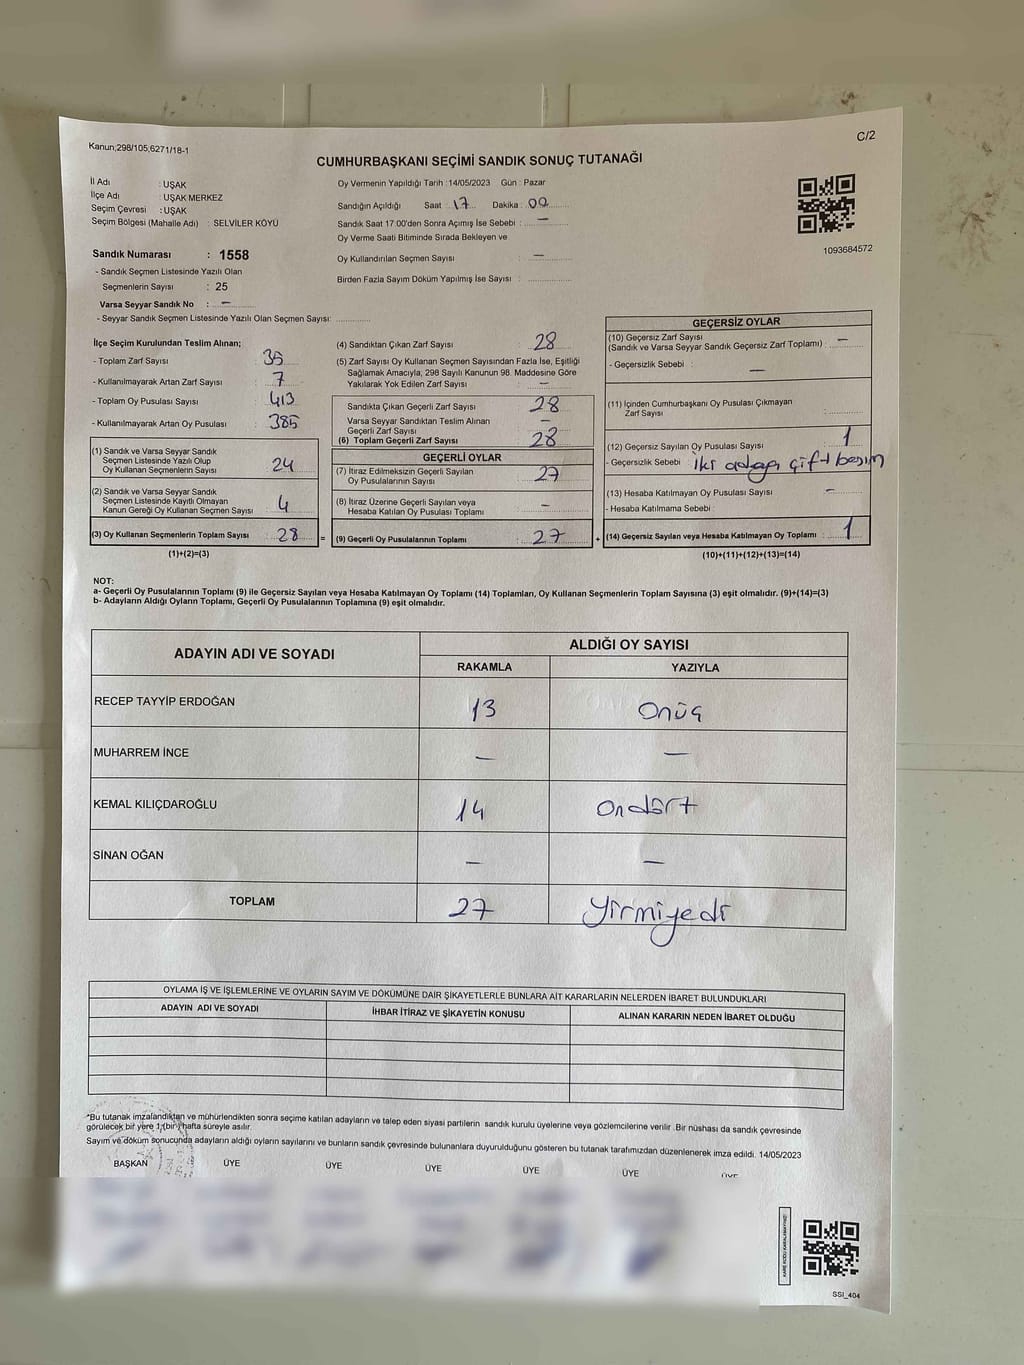 Kanun;298/105,6271/18-1
C/2
CUMHURBAŞKANI SEÇİMİ SANDIK SONUÇ TUTANAĞI
İl Adı : UŞAK
İlçe Adı : UŞAK MERKEZ
Seçim Çevresi : UŞAK
Seçim Bölgesi (Mahalle Adı) : SELVİLER KÖYÜ
Sandık Numarası : 1558
- Sandık Seçmen Listesinde Yazılı Olan
Seçmenlerin Sayısı : 25
Varsa Seyyar Sandık No : —
- Seyyar Sandık Seçmen Listesinde Yazılı Olan Seçmen Sayısı:
Oy Vermenin Yapıldığı Tarih :14/05/2023 Gün : Pazar
Sandığın Açıldığı Saat : 17 Dakika : 00
Sandık Saat 17:00'den Sonra Açımış İse Sebebi : —
Oy Verme Saati Bitiminde Sırada Bekleyen ve
Oy Kullandırılan Seçmen Sayısı : —
Birden Fazla Sayım Döküm Yapılmış İse Sayısı :
1093684572
İlçe Seçim Kurulundan Teslim Alınan;
- Toplam Zarf Sayısı : 35
- Kullanılmayarak Artan Zarf Sayısı : 7
- Toplam Oy Pusulası Sayısı : 413
- Kullanılmayarak Artan Oy Pusulası : 385
(1) Sandık ve Varsa Seyyar Sandık
Seçmen Listesinde Yazılı Olup
Oy Kullanan Seçmenlerin Sayısı : 24
(2) Sandık ve Varsa Seyyar Sandık
Seçmen Listesinde Kayıtlı Olmayan
Kanun Gereği Oy Kullanan Seçmen Sayısı : 4
(3) Oy Kullanan Seçmenlerin Toplam Sayısı : 28 =
(1)+(2)=(3)
(4) Sandıktan Çıkan Zarf Sayısı : 28
(5) Zarf Sayısı Oy Kullanan Seçmen Sayısından Fazla İse, Eşitliği
Sağlamak Amacıyla, 298 Sayılı Kanunun 98. Maddesine Göre
Yakılarak Yok Edilen Zarf Sayısı : —
Sandıkta Çıkan Geçerli Zarf Sayısı : 28
Varsa Seyyar Sandıktan Teslim Alınan
Geçerli Zarf Sayısı : —
(6) Toplam Geçerli Zarf Sayısı : 28
GEÇERLİ OYLAR
(7) İtiraz Edilmeksizin Geçerli Sayılan
Oy Pusulalarının Sayısı : 27
(8) İtiraz Üzerine Geçerli Sayılan veya
Hesaba Katılan Oy Pusulası Toplamı : —
(9) Geçerli Oy Pusulalarının Toplamı : 27 +
GEÇERSİZ OYLAR
(10) Geçersiz Zarf Sayısı
(Sandık ve Varsa Seyyar Sandık Geçersiz Zarf Toplamı) : —
- Geçersizlik Sebebi : —
(11) İçinden Cumhurbaşkanı Oy Pusulası Çıkmayan
Zarf Sayısı :
(12) Geçersiz Sayılan Oy Pusulası Sayısı : 1
- Geçersizlik Sebebi : iki adaya çift basım
(13) Hesaba Katılmayan Oy Pusulası Sayısı : —
- Hesaba Katılmama Sebebi
(14) Geçersiz Sayılan veya Hesaba Katılmayan Oy Toplamı : 1
(10)+(11)+(12)+(13)=(14)
NOT:
a- Geçerli Oy Pusulalarının Toplamı (9) ile Geçersiz Sayılan veya Hesaba Katılmayan Oy Toplamı (14) Toplamları, Oy Kullanan Seçmenlerin Toplam Sayısına (3) eşit olmalıdır. (9)+(14)=(3)
b- Adayların Aldığı Oyların Toplamı, Geçerli Oy Pusulalarının Toplamına (9) eşit olmalıdır.
ADAYIN ADI VE SOYADI
ALDIĞI OY SAYISI
RAKAMLA YAZIYLA
RECEP TAYYİP ERDOĞAN 13 onüç
MUHARREM İNCE — —
KEMAL KILIÇDAROĞLU 14 ondört
SİNAN OĞAN — —
TOPLAM 27 yirmiyedi
OYLAMA İŞ VE İŞLEMLERİNE VE OYLARIN SAYIM VE DÖKÜMÜNE DAİR ŞİKAYETLERLE BUNLARA AİT KARARLARIN NELERDEN İBARET BULUNDUKLARI
ADAYIN ADI VE SOYADI İHBAR İTİRAZ VE ŞİKAYETİN KONUSU ALINAN KARARIN NEDEN İBARET OLDUĞU
*Bu tutanak imzalandıktan ve mühürlendikten sonra seçime katılan adayların ve talep eden siyasi partilerin sandık kurulu üyelerine veya gözlemcilerine verilir .Bir nüshası da sandık çevresinde
görülecek bir yere 1 (bir) hafta süreyle asılır.
Sayım ve döküm sonucunda adayların aldığı oyların sayılarını ve bunların sandık çevresinde bulunanlara duyurulduğunu gösteren bu tutanak tarafımızdan düzenlenerek imza edildi. 14/05/2023
BAŞKAN ÜYE ÜYE ÜYE ÜYE ÜYE ÜYE
SSI_404